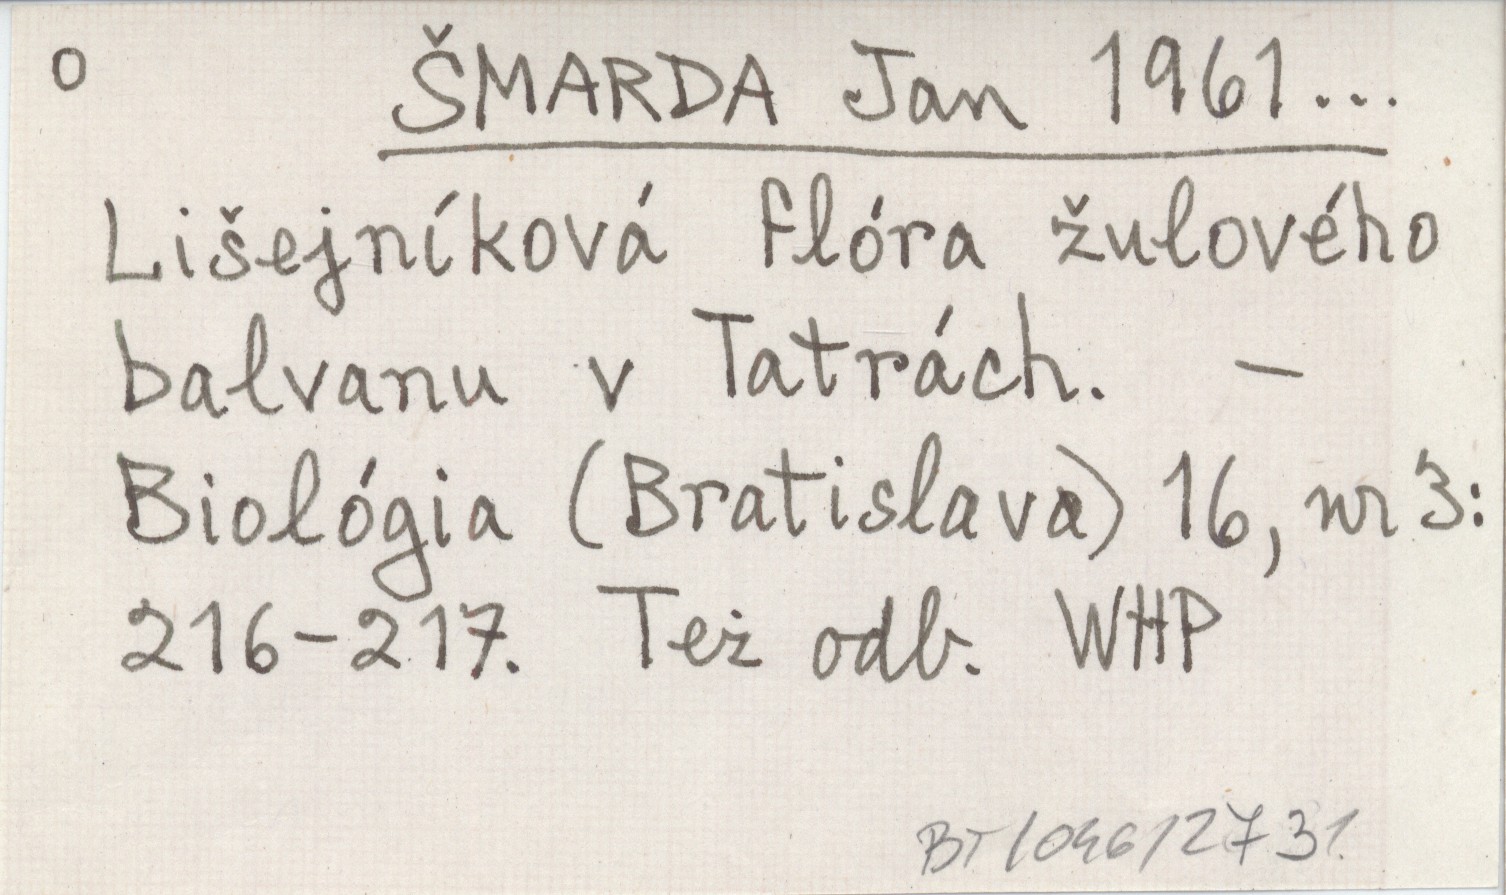 o ŠMARDA Jan 1961...
Lišejníková flóra žulového
balvanu v Tatrách. –
Biológia (Bratislava) 16, nr 3:
216-217. Też odb. WHP
BT/046/2731.